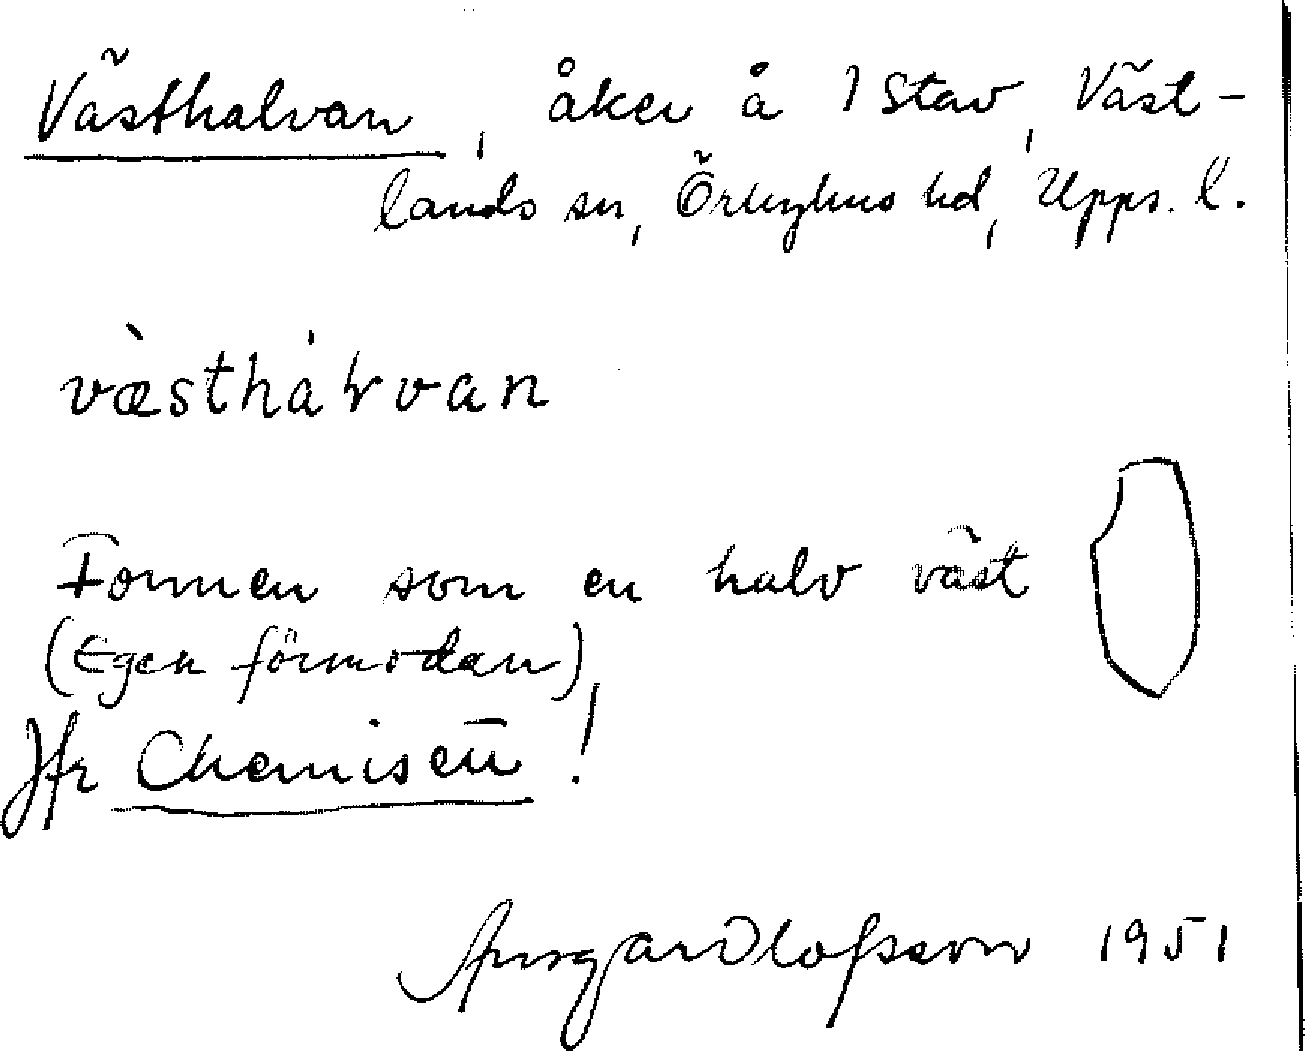 Västhalvan, åker å 1 Stav, Väst-
lands sn, Örbyhus hd, Upps. l.
væ̀sthálvan
Formen som en halv väst
(Egen förmodan)
Jfr Chemisen!
Ansgar Olofsson 1951